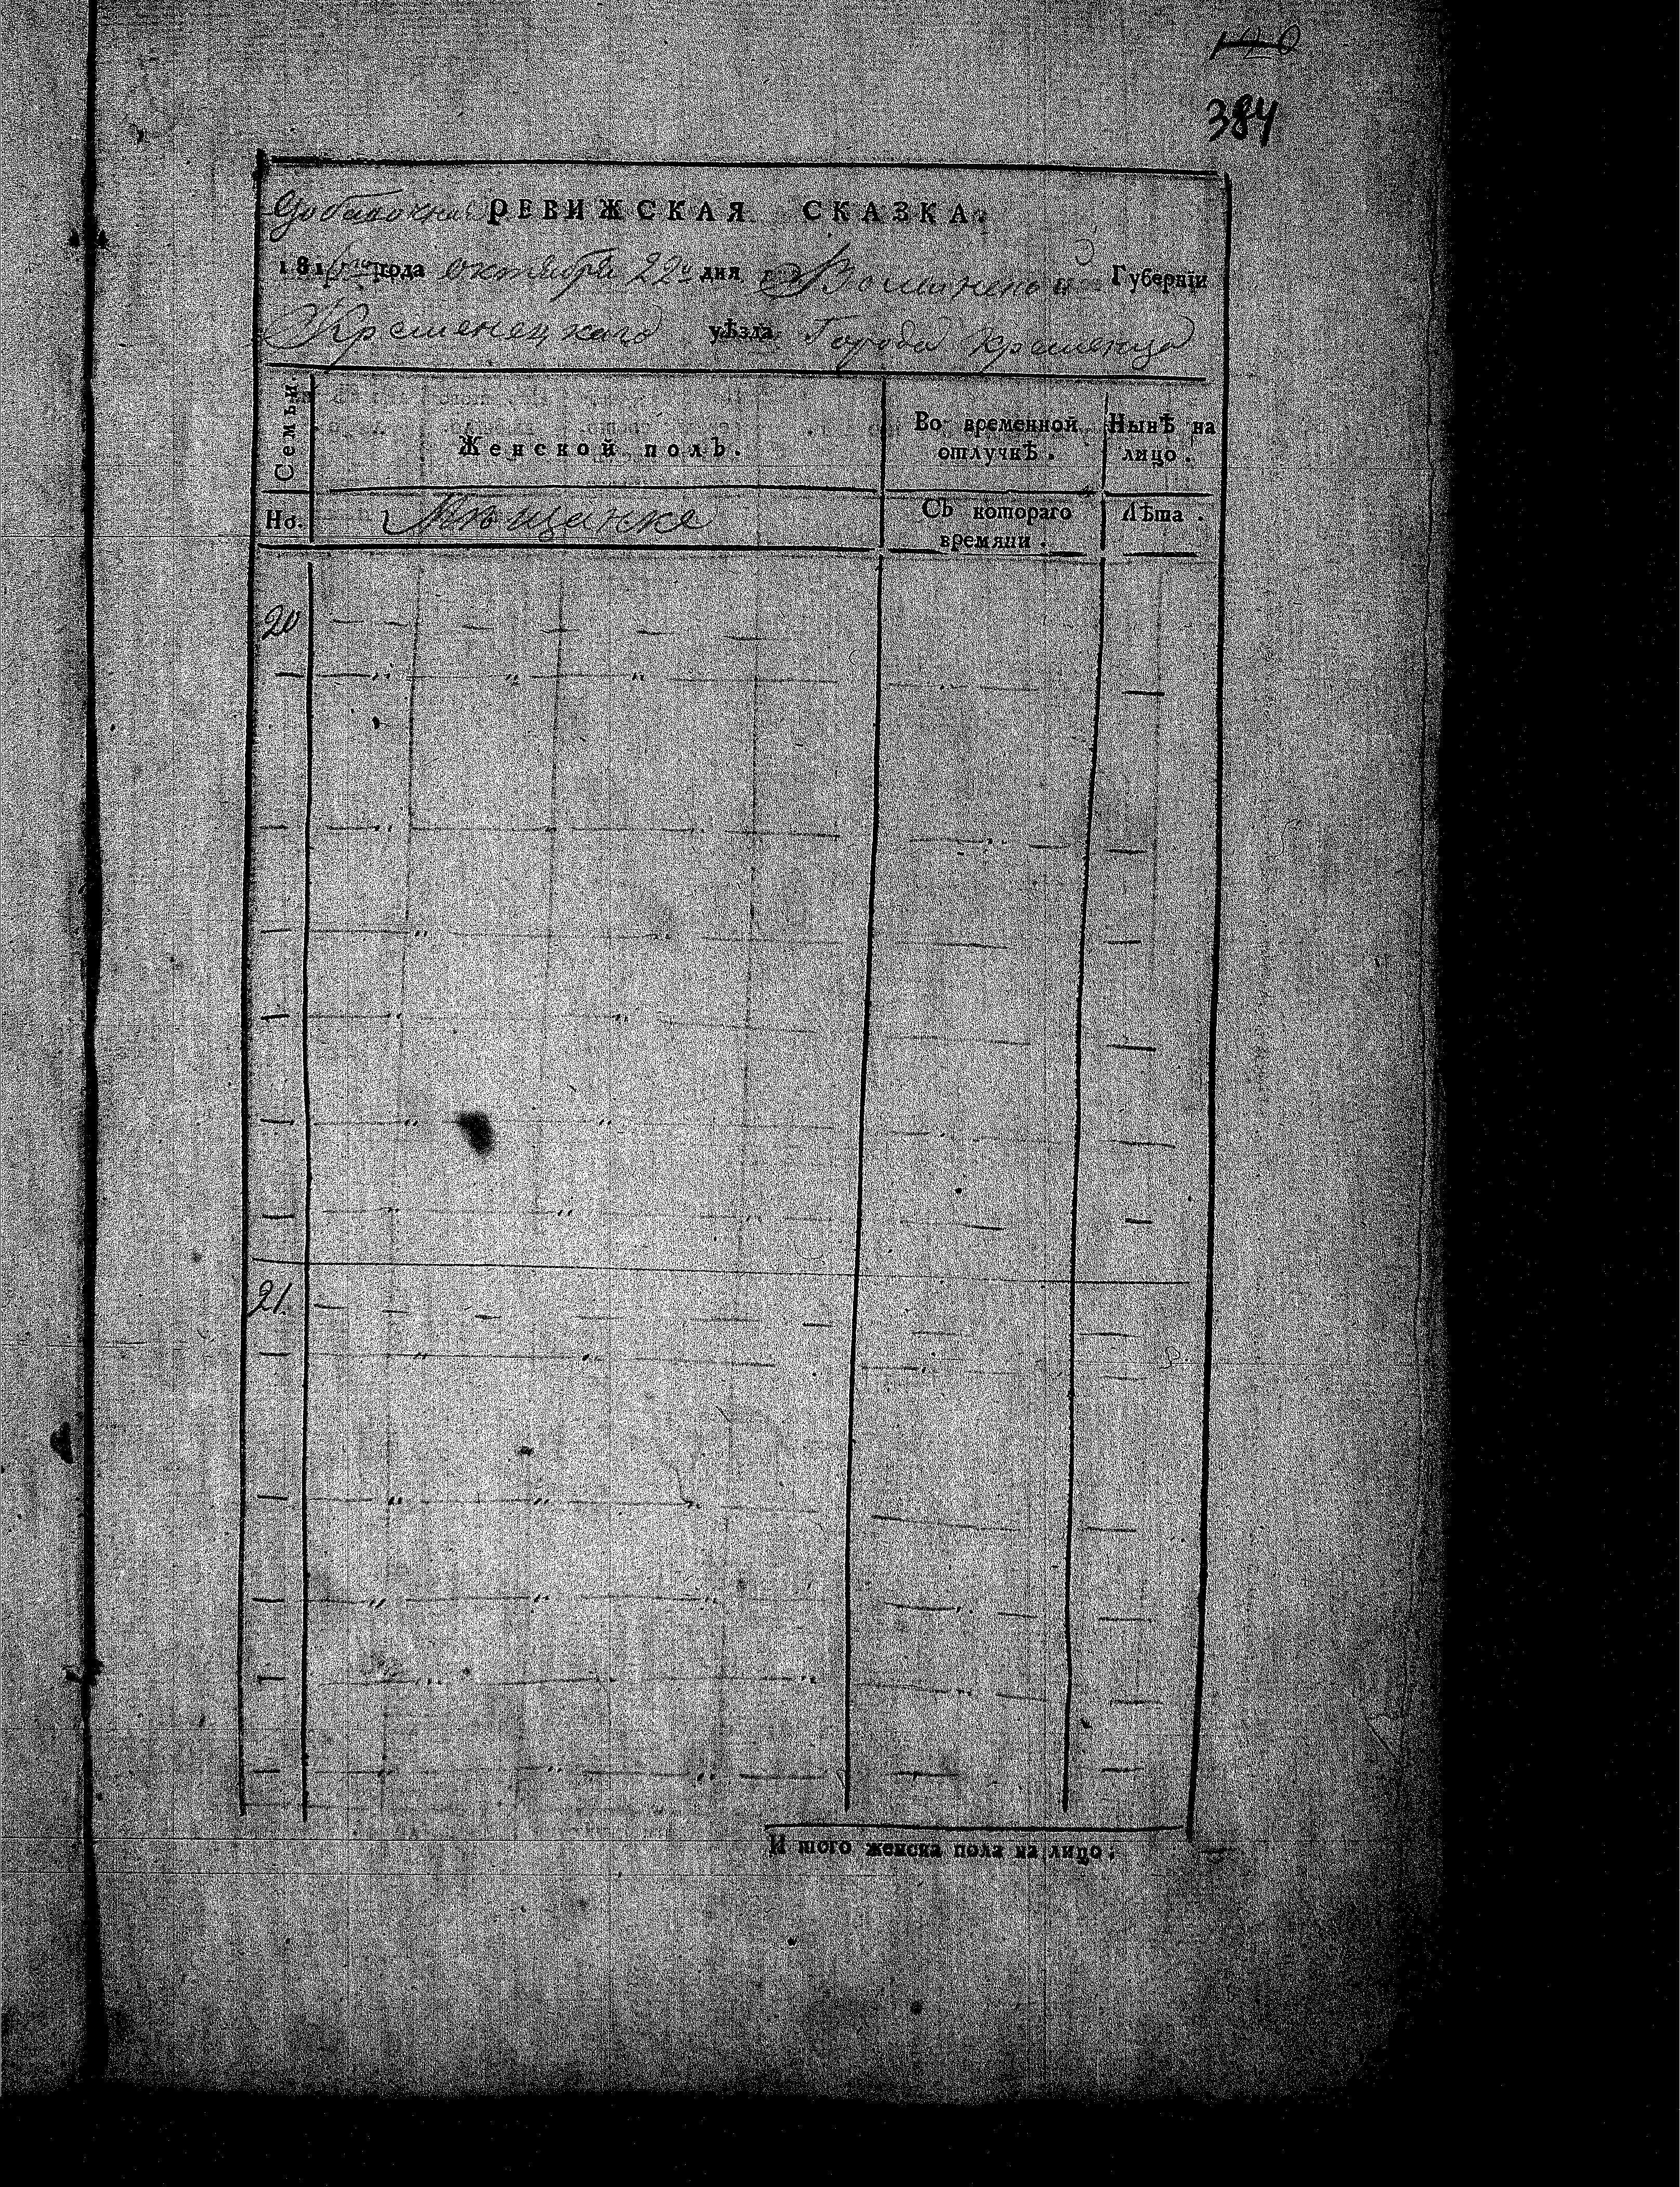 384
Добавочная РЕВИЖСКАЯ СКАЗКА.
1816го года октября 22го дня Волынской Губернїи
Кременецкаго уѣзда Города Кременца
Семьи. Женской полъ. Во временной отлучкѣ. Нынѣ на лицо.
Но. Мещанке Съ котораго времяни. Лѣта.
20
21.
И того женска пола на лицо.